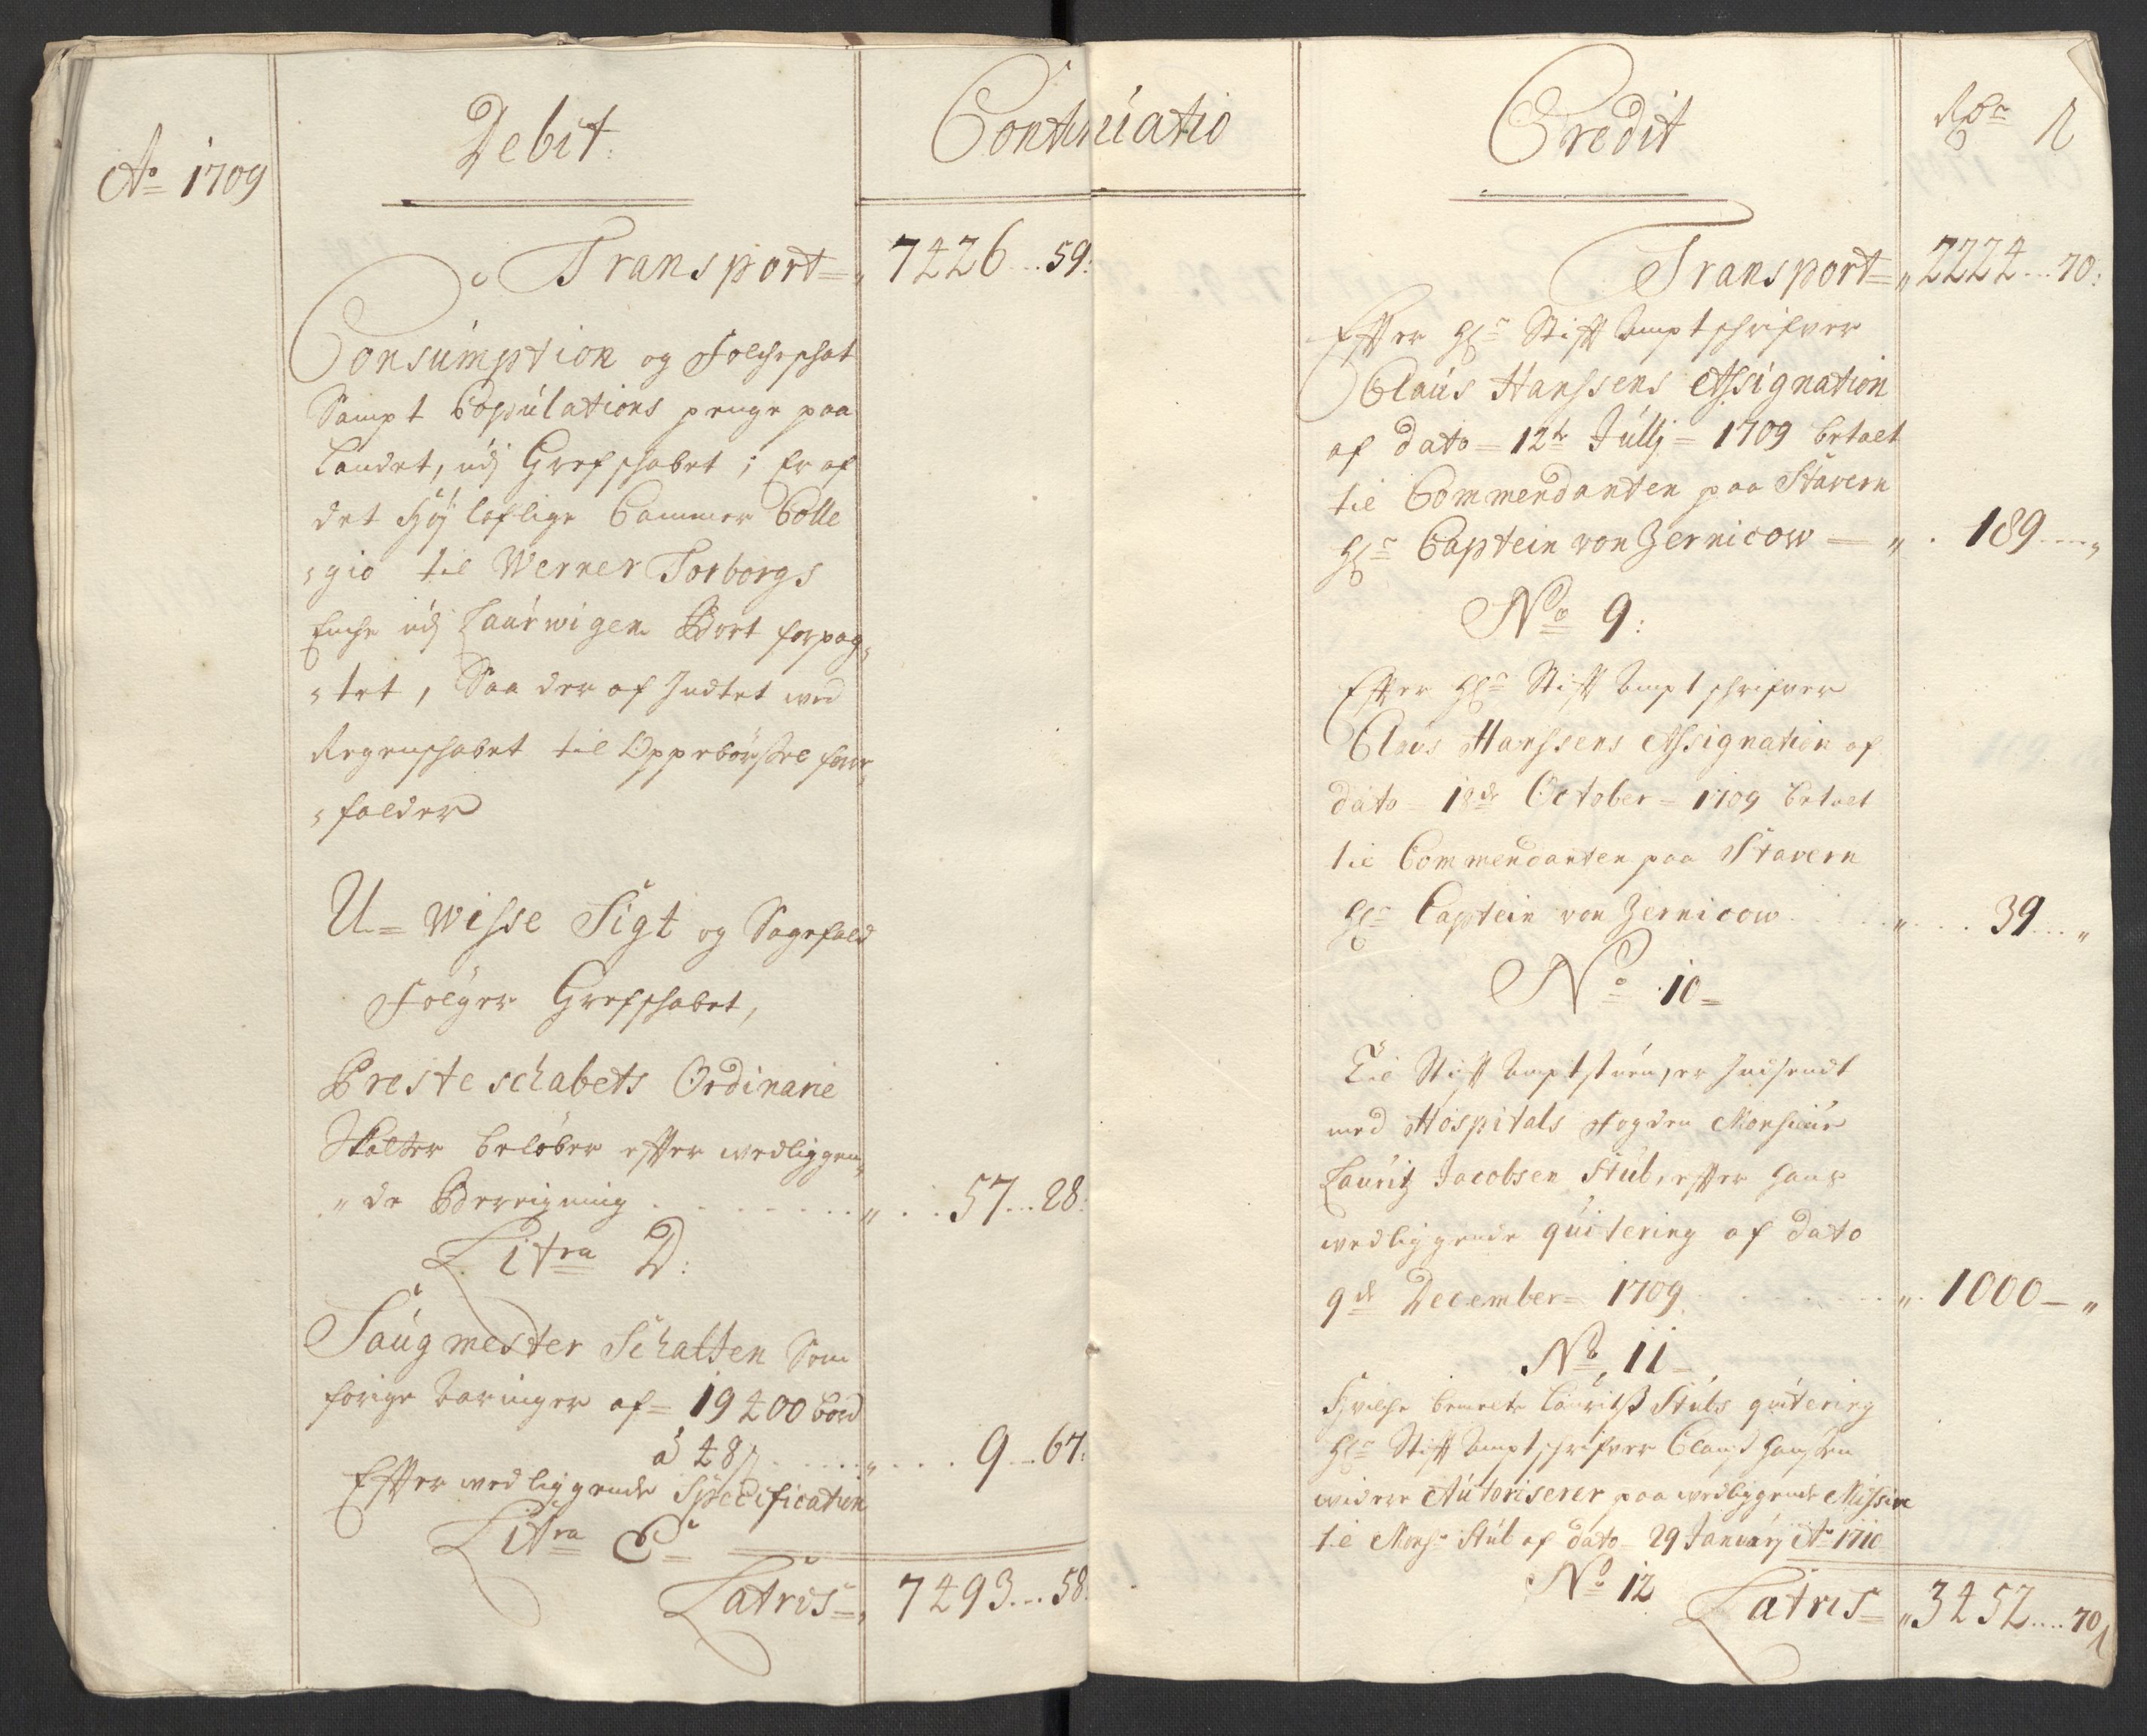 Ao 1709
Debit:
Continuatio
Transport = „ 7426...59:
Consumption og Folcheschat
Sampt Copulations penge paa
Landet, udj Grefschabet; Er af
det Høj loflige Cammer Colle
„gio til Werner Torborgs
Enche udj Laurwigen Bort forpag„
„tet, Saa der af Indtet ved
Regenschabet til Oppebørsel for„
„falder
U=wisse Sigt og Sagefald
Følger Grefschabet,
Presteschabets Ordinarie
Skatter beløber efter wedliggen„
„de Beregning . . . . „ . . 57...28:
Litra D:
Saugmester Schatten Som
forige Aaringer af = 19400 bord
à 48 s . . . . „ . . . 9...67:
Effter wedliggende Specification
Litra E
Latris = „ 7493...58
Credit
Rdr s
Transport = „ 2224...70:
Effter Hr Stifft Amptschrifver
Claus Hanssens Assignation
af dato = 12te Julij = 1709 betalt
til Commendanten paa Stavern
Hr Captein von Zernicow — „ . 189....„
No 9:
Effter Hr Stifft Amptschrifver
Claus Hanssens Assignation af
dato = 18de October = 1709 betalt
til Commendanten paa Stavern
Hr Captein von Zernicow . . . „ . . . 39...„
No 10=
Til Stifft Amptstuen, er Indsendt
med Hospitals Fogden Monsieur
Lauritz Jacobsen Stub, effter hans
wedliggende quitering af dato
9de December = 1709 . . . . „ . 1000 — „
No 11=
Hvilche bemelte Lauritz Stubs quitering
Hr Stifft Amptschrifver Claus Hanssen
widere Autoriserer paa wedliggende Missive
til Monsr Stub af dato 29 January Ao 1710
No 12
Latris = „ 3452....70